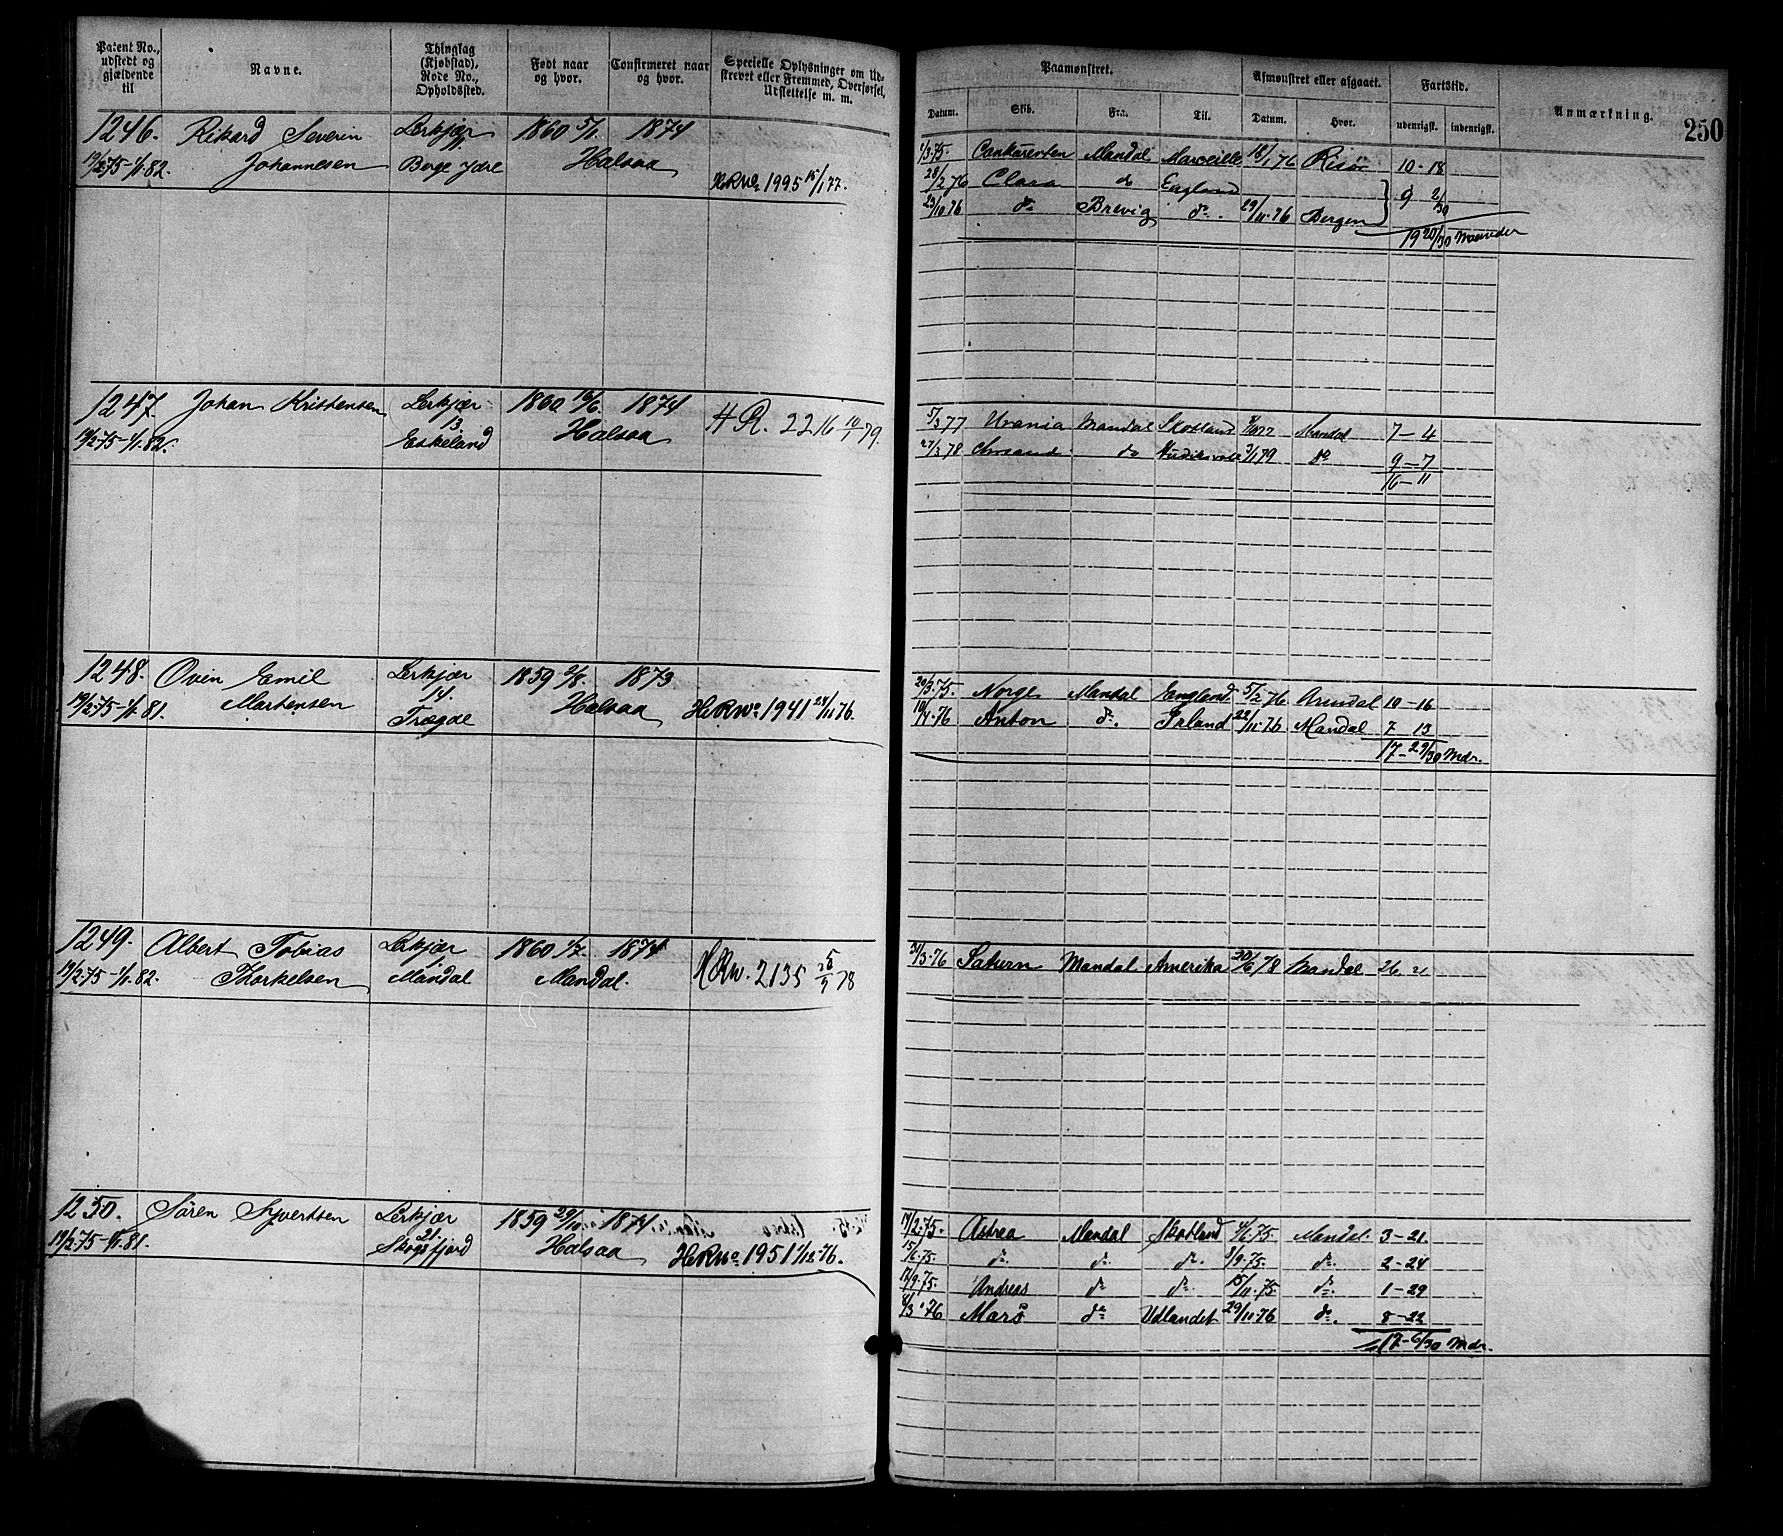 Patent No., udstedt og gjældende til
Navne.
Thinglag (Kjøbstad), Rode No., Opholdssted.
Født naar og hvor.
Confirmeret naar og hvor.
Specielle Oplysninger om Udskrevet eller Fremmed, Overførsel, Udslettelse m. m.
Paamønstret.
Afmønstret eller afgaaet.
Fartstid.
Anmærkning.
250
Datum. Skib. Fra. Til. Datum. Hvor. udenrigsk. indenrigsk.
1246. Rikard Severin Lerkjær 1860 5/1 1874
19/2 75 - 1/1 82. Johannesen 11 Berge Ydre Halsaa HRNo 1995 15/1 77.
1/3 75. Conkurenten Mandal Marseille 18/1 76 Risör 10 - 18
28/2 76 Clara do England
23/10 76 do Brevig do. 29/11 76 Bergen 9 2/30
19 20/30 Maaneder
1247. Johan Kristensen Lerkjær 1860 16/6 1874
19/2 75 - 1/1 82. 13 Eskeland Halsaa HR. 2216 79.
5/3 77 Urania Mandal Skotland 77 Mandal 7 - 4
27/3 78 do 3/1 79 do 9 - 7
16 - 11
1248. Ovin Emil Lerkjær 1859 2/8. 1873
19/2 75 - 1/1 81. Martensen 14. Trægde Halsaa HRNo 1941 28/11 76.
20/3 75. Norge Mandal England. 5/2 76 Arendal 10 - 16
10/4 76 Anton do. Irland 22/11 76 Mandal 7 13
17 - 29/30 Mdr.
1249. Albert Tobias Lerkjær 1860 1/7. 1874
19/2 75 - 1/1 82. Thorkelsen 1 Mandal Mandal. HRNo. 2135 78
31/3 76 Saturn Mandal Amerika 20/6 78 Mandal 26 21
1250. Søren Syvertsen Lerkjær 1859 29/10 1874
19/2 75 - 1/1 81. 21. Skogsfjord Halsaa HRNo 1951 1/12 76.
19/2 75. Astrea Mandal Skotland 4/6 75. Mandal. 3 - 21
15/6 75. do. do. do. 8/9 75. do. 2 - 24
17/9 75. Andreas do do. 15/11 75. do. 1 - 29
8/3 76 Mars do Udlandet 29/11 76 do. 8 - 22
17 - 6/30 Mdr.